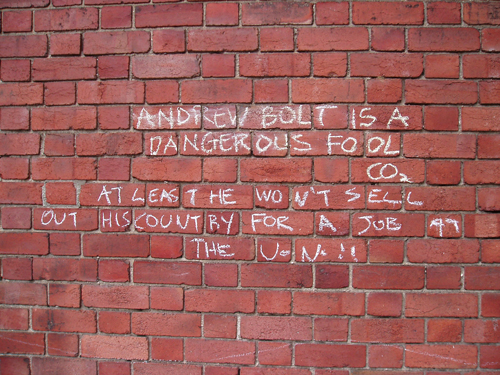 ANDREW BOLT IS A
DANGEROUS FOOL
CO₂
AT LEAST HE WON'T SELL
OUT HIS COUNTRY FOR A JOB AT
THE U.N.!!